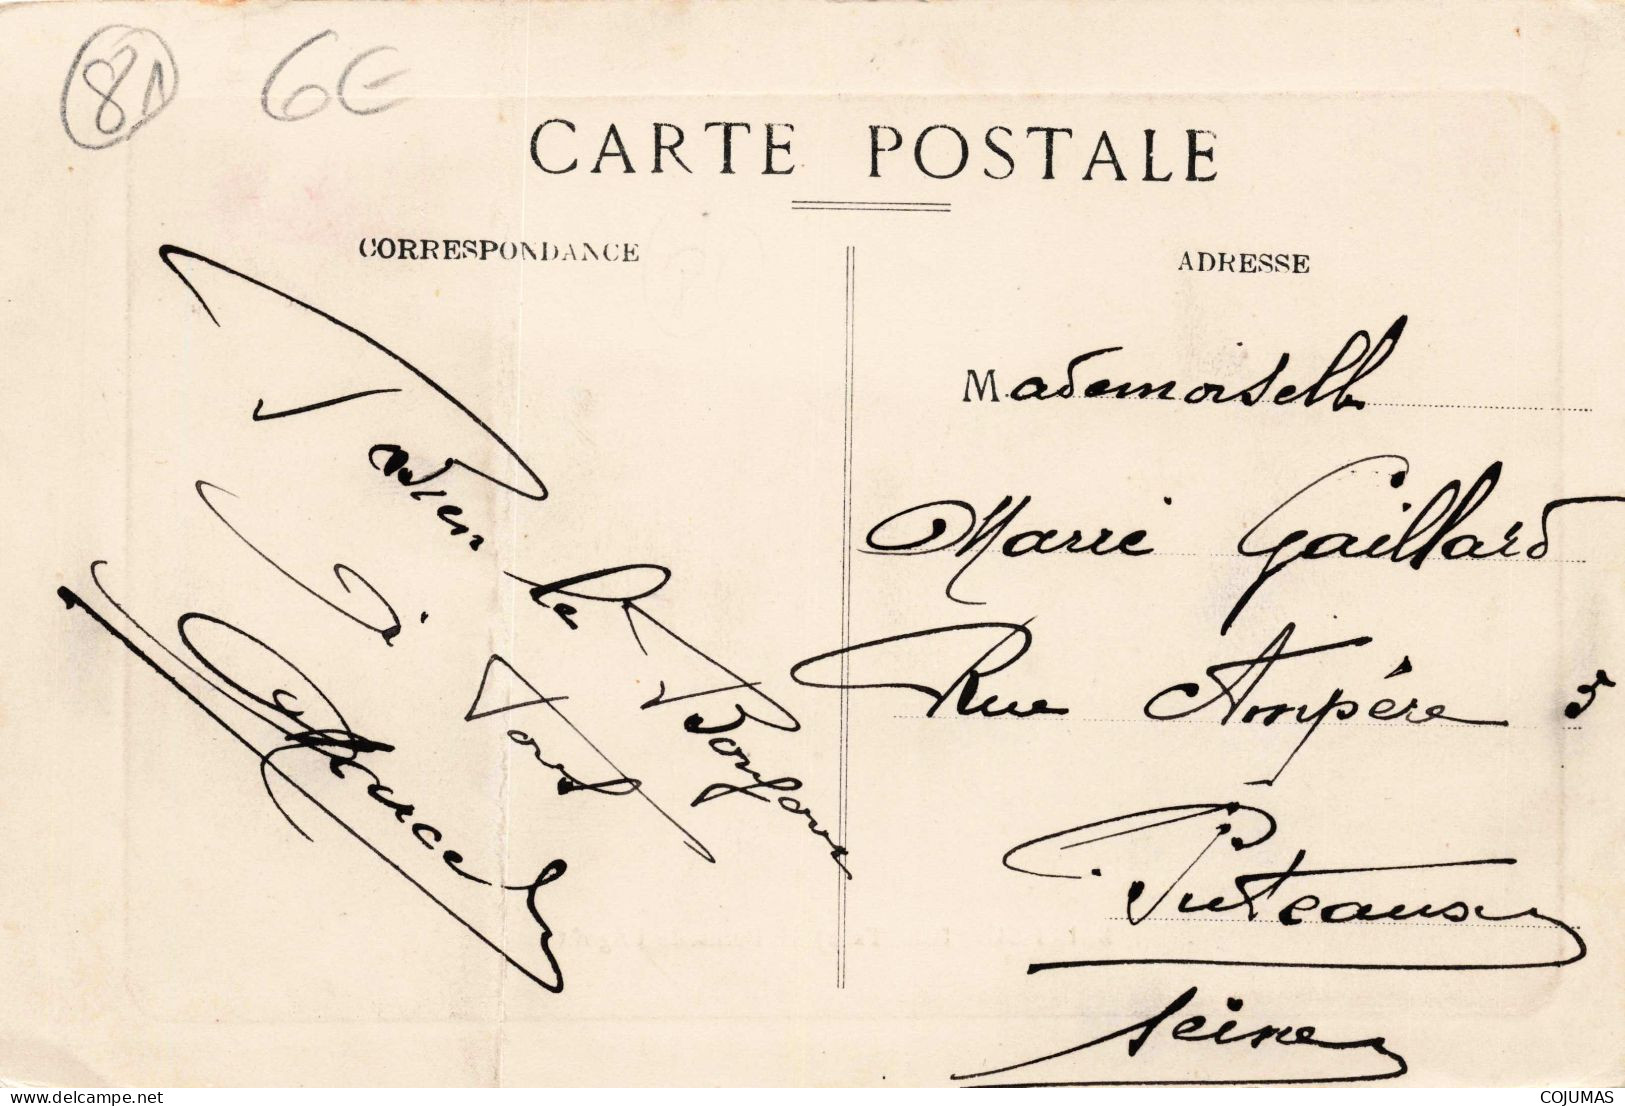 81 6€
CARTE POSTALE
CORRESPONDANCE
ADRESSE
Bien le Bonjour
à tous
Marcel
Mademoiselle
Marie Gaillard
Rue Ampère 5
Puteaux
Seine
delcampe.net
COJUMAS